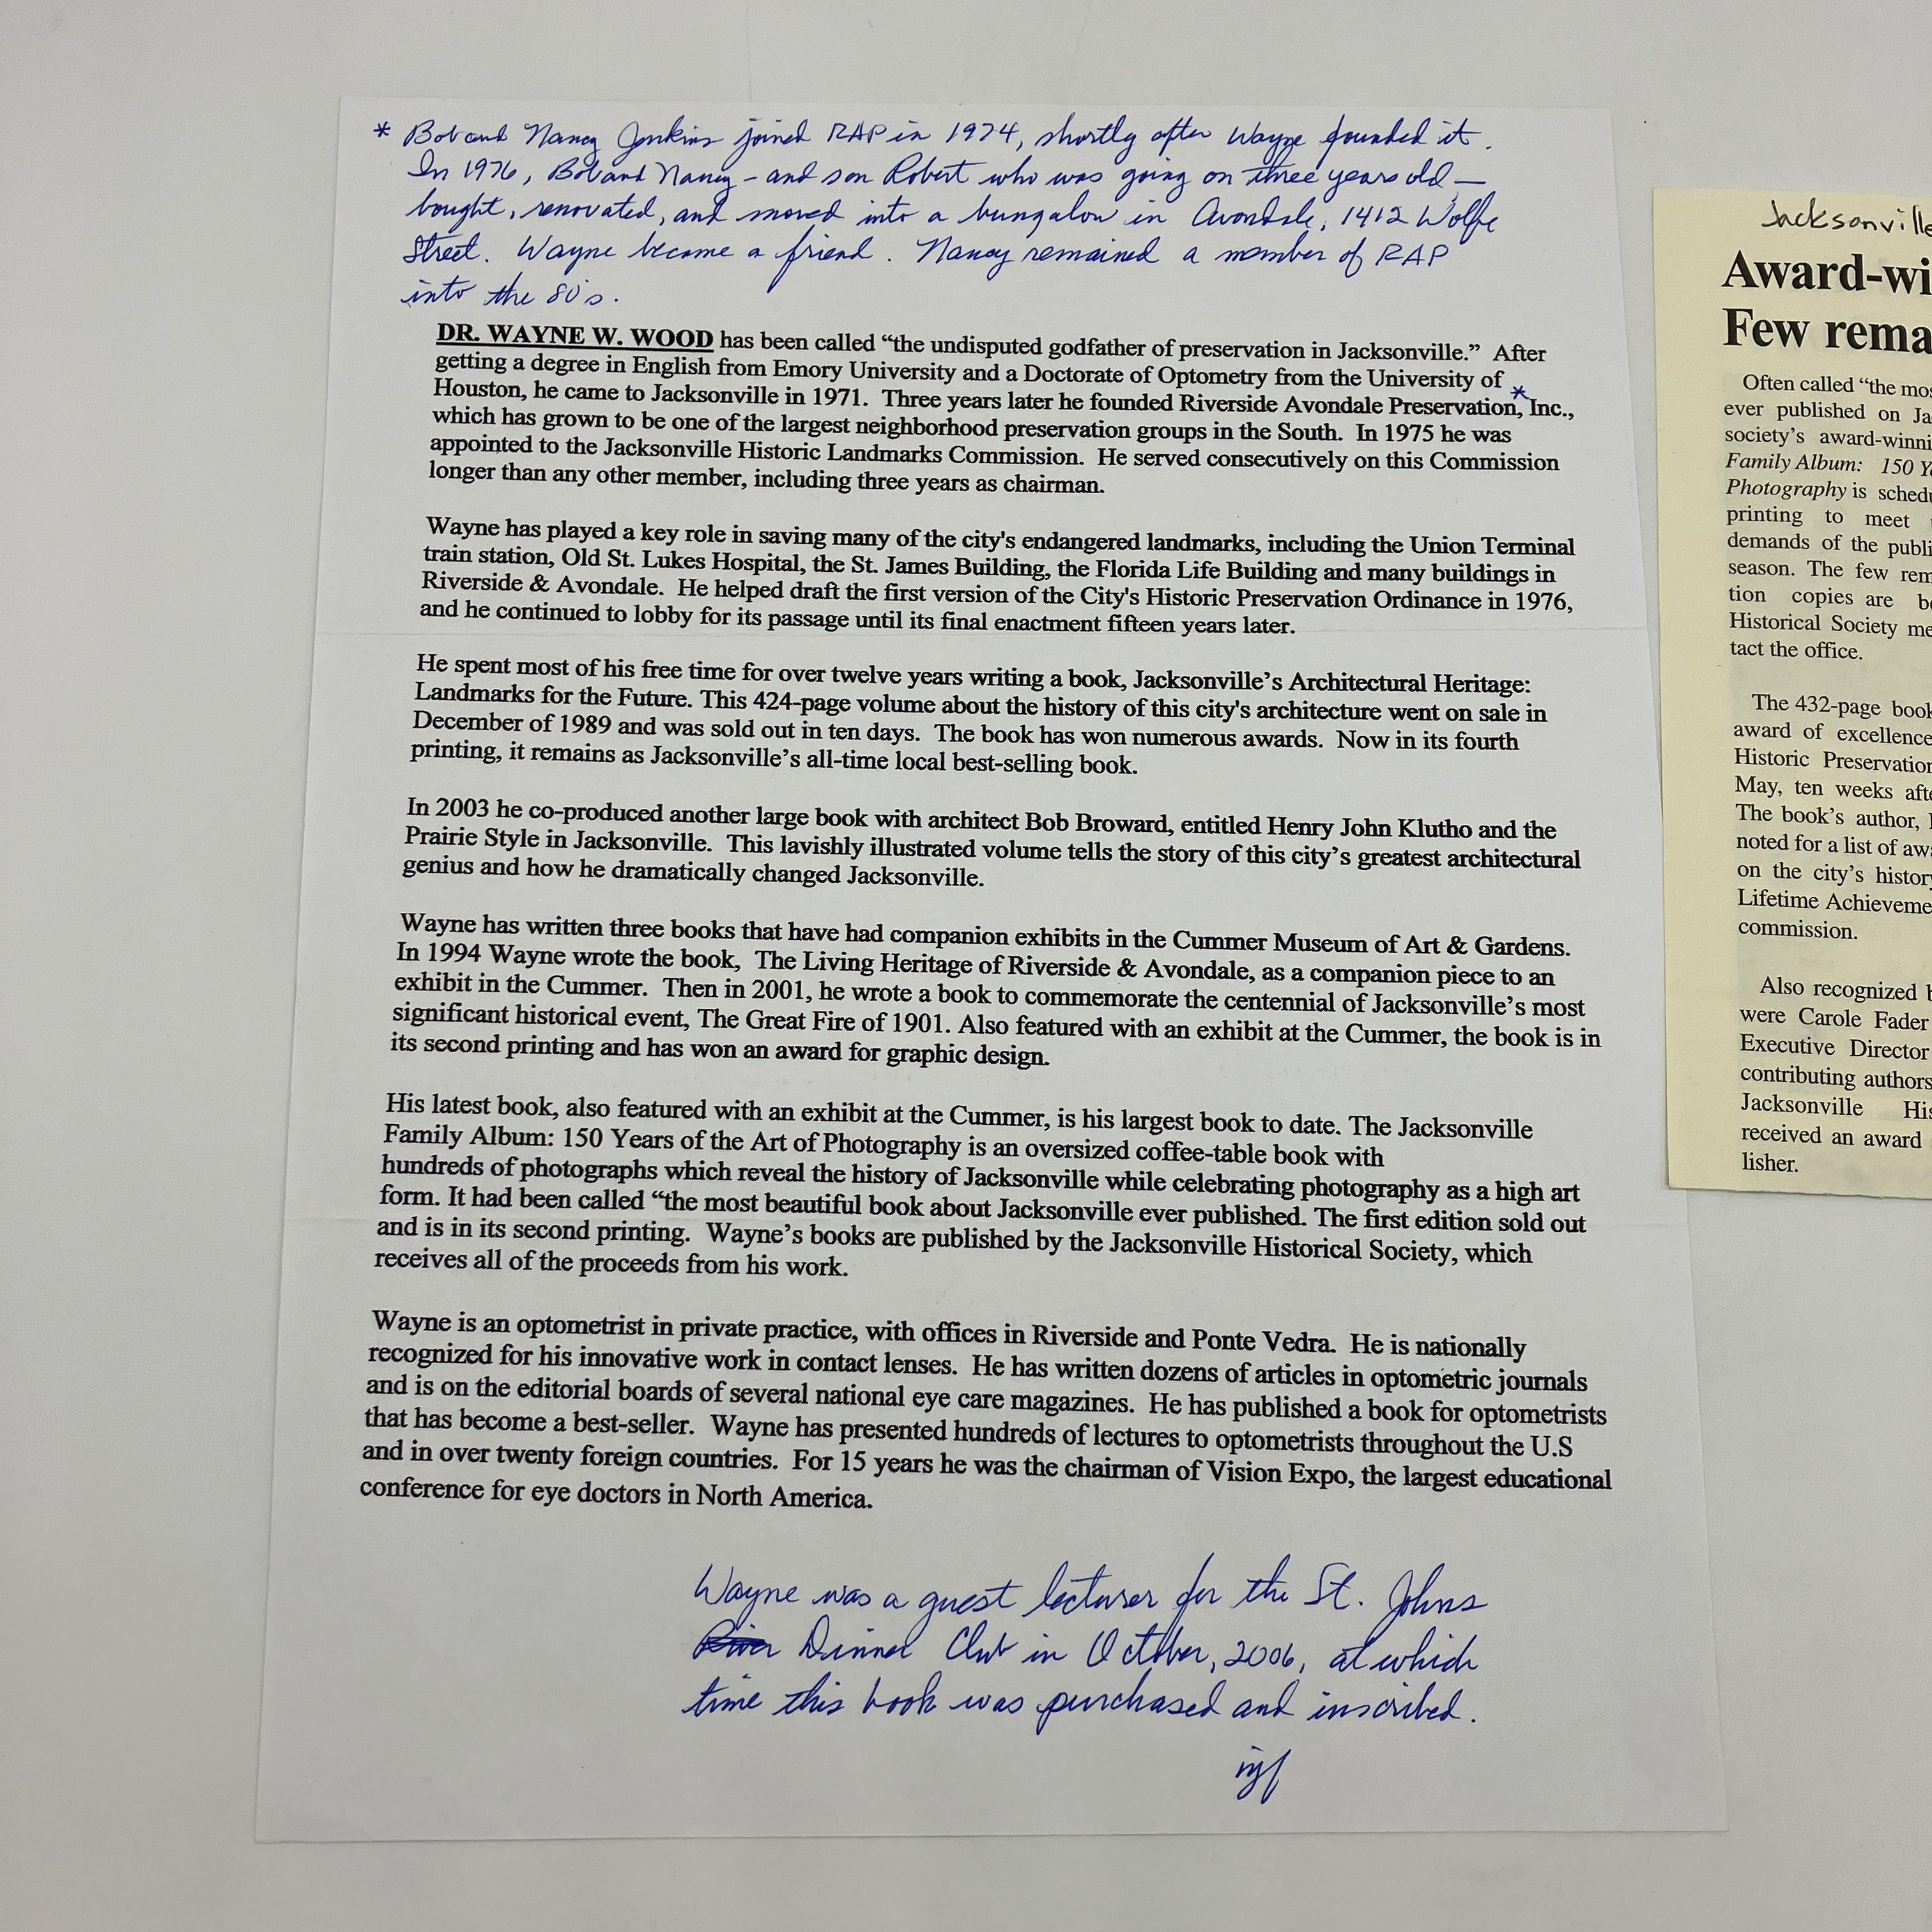 * Bob and Nancy Jenkins joined RAP in 1974, shortly after Wayne founded it.
In 1976, Bob and Nancy - and son Robert who was going on three years old —
bought, renovated, and moved into a bungalow in Avondale, 1412 Wolfe
Street. Wayne became a friend. Nancy remained a member of RAP
into the 80's.
DR. WAYNE W. WOOD has been called “the undisputed godfather of preservation in Jacksonville.” After
getting a degree in English from Emory University and a Doctorate of Optometry from the University of
Houston, he came to Jacksonville in 1971. Three years later he founded Riverside Avondale Preservation,* Inc.,
which has grown to be one of the largest neighborhood preservation groups in the South. In 1975 he was
appointed to the Jacksonville Historic Landmarks Commission. He served consecutively on this Commission
longer than any other member, including three years as chairman.
Wayne has played a key role in saving many of the city's endangered landmarks, including the Union Terminal
train station, Old St. Lukes Hospital, the St. James Building, the Florida Life Building and many buildings in
Riverside & Avondale. He helped draft the first version of the City's Historic Preservation Ordinance in 1976,
and he continued to lobby for its passage until its final enactment fifteen years later.
He spent most of his free time for over twelve years writing a book, Jacksonville’s Architectural Heritage:
Landmarks for the Future. This 424-page volume about the history of this city's architecture went on sale in
December of 1989 and was sold out in ten days. The book has won numerous awards. Now in its fourth
printing, it remains as Jacksonville’s all-time local best-selling book.
In 2003 he co-produced another large book with architect Bob Broward, entitled Henry John Klutho and the
Prairie Style in Jacksonville. This lavishly illustrated volume tells the story of this city’s greatest architectural
genius and how he dramatically changed Jacksonville.
Wayne has written three books that have had companion exhibits in the Cummer Museum of Art & Gardens.
In 1994 Wayne wrote the book, The Living Heritage of Riverside & Avondale, as a companion piece to an
exhibit in the Cummer. Then in 2001, he wrote a book to commemorate the centennial of Jacksonville’s most
significant historical event, The Great Fire of 1901. Also featured with an exhibit at the Cummer, the book is in
its second printing and has won an award for graphic design.
His latest book, also featured with an exhibit at the Cummer, is his largest book to date. The Jacksonville
Family Album: 150 Years of the Art of Photography is an oversized coffee-table book with
hundreds of photographs which reveal the history of Jacksonville while celebrating photography as a high art
form. It had been called “the most beautiful book about Jacksonville ever published. The first edition sold out
and is in its second printing. Wayne’s books are published by the Jacksonville Historical Society, which
receives all of the proceeds from his work.
Wayne is an optometrist in private practice, with offices in Riverside and Ponte Vedra. He is nationally
recognized for his innovative work in contact lenses. He has written dozens of articles in optometric journals
and is on the editorial boards of several national eye care magazines. He has published a book for optometrists
that has become a best-seller. Wayne has presented hundreds of lectures to optometrists throughout the U.S
and in over twenty foreign countries. For 15 years he was the chairman of Vision Expo, the largest educational
conference for eye doctors in North America.
Wayne was a guest lecturer for the St. Johns
River Dinner Club in October, 2006, at which
time this book was purchased and inscribed.
Jacksonville
Award-wi
Few rema
Often called “the mos
ever published on Ja
society’s award-winni
Family Album: 150 Y
Photography is sched
printing to meet
demands of the publi
season. The few rem
tion copies are b
Historical Society me
tact the office.
The 432-page book
award of excellence
Historic Preservation
May, ten weeks afte
The book’s author,
noted for a list of aw
on the city’s history
Lifetime Achieveme
commission.
Also recognized b
were Carole Fader
Executive Director
contributing authors
Jacksonville His
received an award
lisher.